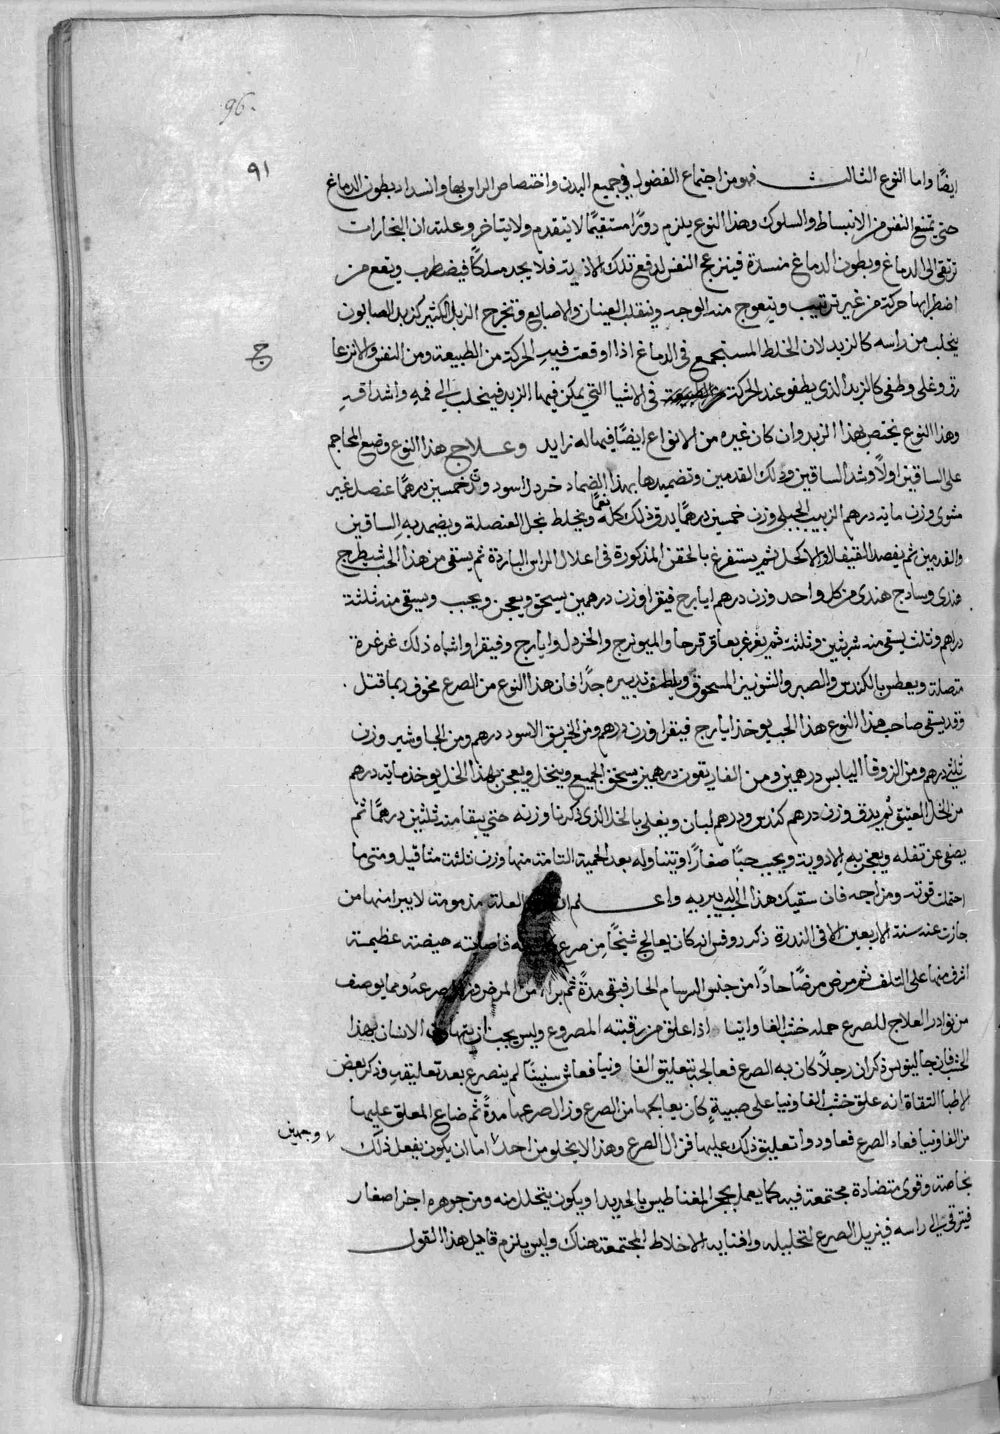 96.
٩١
ايضًا واما النوع الثالث فهو من اجتماع الفضول في جميع البدن واختصاص الراس بها وانسداد بطون الدماغ
حتى تمتنع النفس من الانبساط والسلوك وهذا النوع يلزم دورًا مستقيمًا لا يتقدم ولا يتاخر وعلته ان البخارات
ترتقي الى الدماغ وبطون الدماغ منسدة فينزعج النفس لدفع تلك الاذية فلا يجد مسلكًا فيضطرب ويقع من
اضطرابها حركة من غير ترتيب ويتعوج منه الوجه وينقلب العينان والاصابع وتخرج الزبد الكثير كزبد الصابون
يتحلب من راسه كالزبد لان الخلط المستجمع في الدماغ اذا اوقعت فيه الحركة من الطبيعة ومن النفس والانزعا
ج
رق وغلى وطفى كالزبد الذي يطفو عند الحركة في الاشيا التي يمكن فيها الزبد فيتحلب الى فمه واشداقه
وهذا النوع يختص بهذا الزبد وان كان غيره من الانواع ايضًا فيما له زايد وعلاج هذا النوع وضع المحاجم
على الساقين اولًا وشد الساقين ودلك القدمين وتضميدها بهذا الضماد خردل اسود وزن خمسين درهمًا عنصل غير
مشوى وزن ماية درهم الزبيب الجبلى وزن خمسين درهمًا يدق ذلك كله نعمًا ويخلط بخل العنصلة ويضمد به الساقين
والقدمين ثم يفصد القيفال او الاكحل ثم يستفرغ بالحقن المذكورة في اعلال الراس الباردة ثم يسقى من هذا الحب شيطرج
هندى وسادج هندى من كل واحد وزن درهم ايارج فيقرا وزن درهمين يسحق ويعجن ويحبب ويسقى منه ثلثة
دراهم وثلث يسقى منه شربتين وثلثة ثم يغرغر بعاقرقرحا والميويزج والخردل وايارج وفيقرا واشباه ذلك غرغرة
متصلة ويعطس بالكندس والصبر والشونيز المسحوق ويلطف تدبيره جدًا فان هذا النوع من الصرع مخوف ربما قتل.
وقد يسقى صاحب هذا النوع هذا الحب يوخذ ايارج فيقرا وزن درهم ومن الخربق الاسود درهم ومن الجاوشير وزن
ثلثي درهم ومن الزوفا اليابس درهمين ومن الغاريقون درهمين يسحق الجميع وينخل ويعجن بهذا الخل يوخذ ماية درهم
من الخل العتيق ثم يدق وزن درهم كندس ودرهم لبان ويغلى بالخل الذى ذكرنا وزنه حتى يبقا منه ثلثين درهمًا ثم
يصفى عن ثفله ويعجن به الادوية ويحبب حبًا صغارًا ويتناوله بعد الحمية التامة منها وزن ثلثة مثاقيل ومتى ما
احتملت قوته ومزاجه فان سقيك هذا الحب يبريه واعلم ان العلة مذمومة لا يبرا منها من
جازت عنه سنة الاربعين الا في الندرة ذكر روفس انه كان يعالج شيخًا من صرع فاصابته هيضة عظيمة
اشرف منها على التلف ثم مرض مرضًا حادًا من جنس البرسام الحار فبقى مدةً ثم برا من المرض صرعه ومما يوصف
من نوادر العلاج للصرع حمله خشب الفاوانيا اذا علق من رقبته المصروع وليس يجب ان يتهاون الانسان بهذا
الخشب فان جالينوس ذكر ان رجلًا كان به الصرع فعالجه بتعليق الفاونيا فعاش سنينًا لم ينصرع بعد تعليقه وذكر بعض
الاطبا الثقاة انه علق خشب الفاونيا على صبيةٍ كان يعالجها من الصرع وزال صرعها مدةً ثم ضاع المعلق عليها
من الفاونيا فعاد الصرع فعاودوا تعليق ذلك عليها فزال الصرع وهذا لا يخلو من احد اما ان يكون يفعل ذلك
وجهين
بخاصة وقوى متضادة مجتمعة فيه كما يعمل بحجر المغناطيس بالحديد او يكون يتحلل منه ومن جوهره اجزا صغار
فيترقى الى راسه فيزيل الصرع لتحليله وافنايه الاخلاط المجتمعة هناك وليس يلزم قايل هذا القول